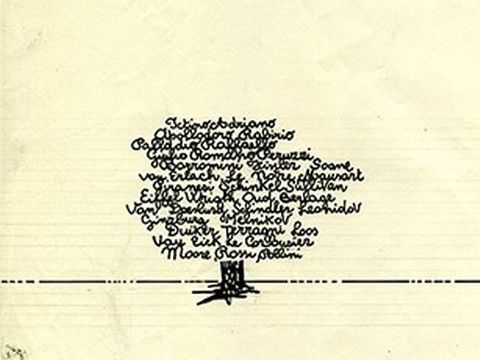 Ictino Adriano
Apollodoro Rabirio
Palladio Raffaello
Giulio Romano Peruzzi
Borromini Finster Soane
von Erlach Le Notre Mansart
Piranesi Schinkel Sullivan
Eiffel Wright Oud Berlage
Van Doesburg Schindler Leonidov
Ginzburg Melnikov
Duiker Terragni Loos
Van Eick Le Corbousier
Moore Rossi Pollini